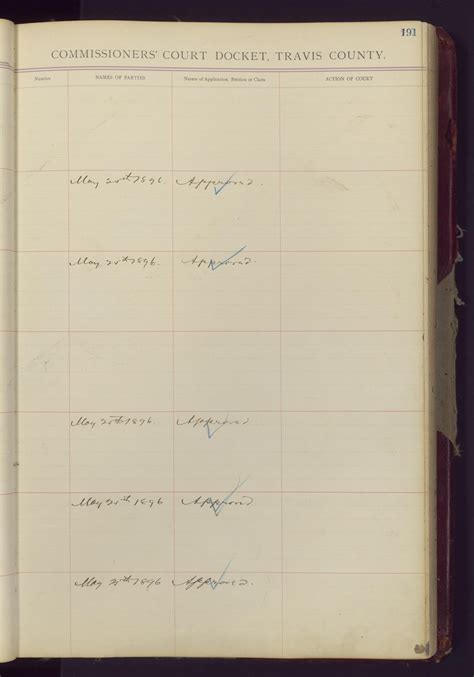 191
COMMISSIONERS' COURT DOCKET, TRAVIS COUNTY.
Number NAMES OF PARTIES Nature of Application, Petition or Claim ACTION OF COURT
May 25th 1896. Approved.
May 25th 1896. Approved.
May 25th 1896. Approved
May 25th 1896 Approved
May 25th 1896 Approved.